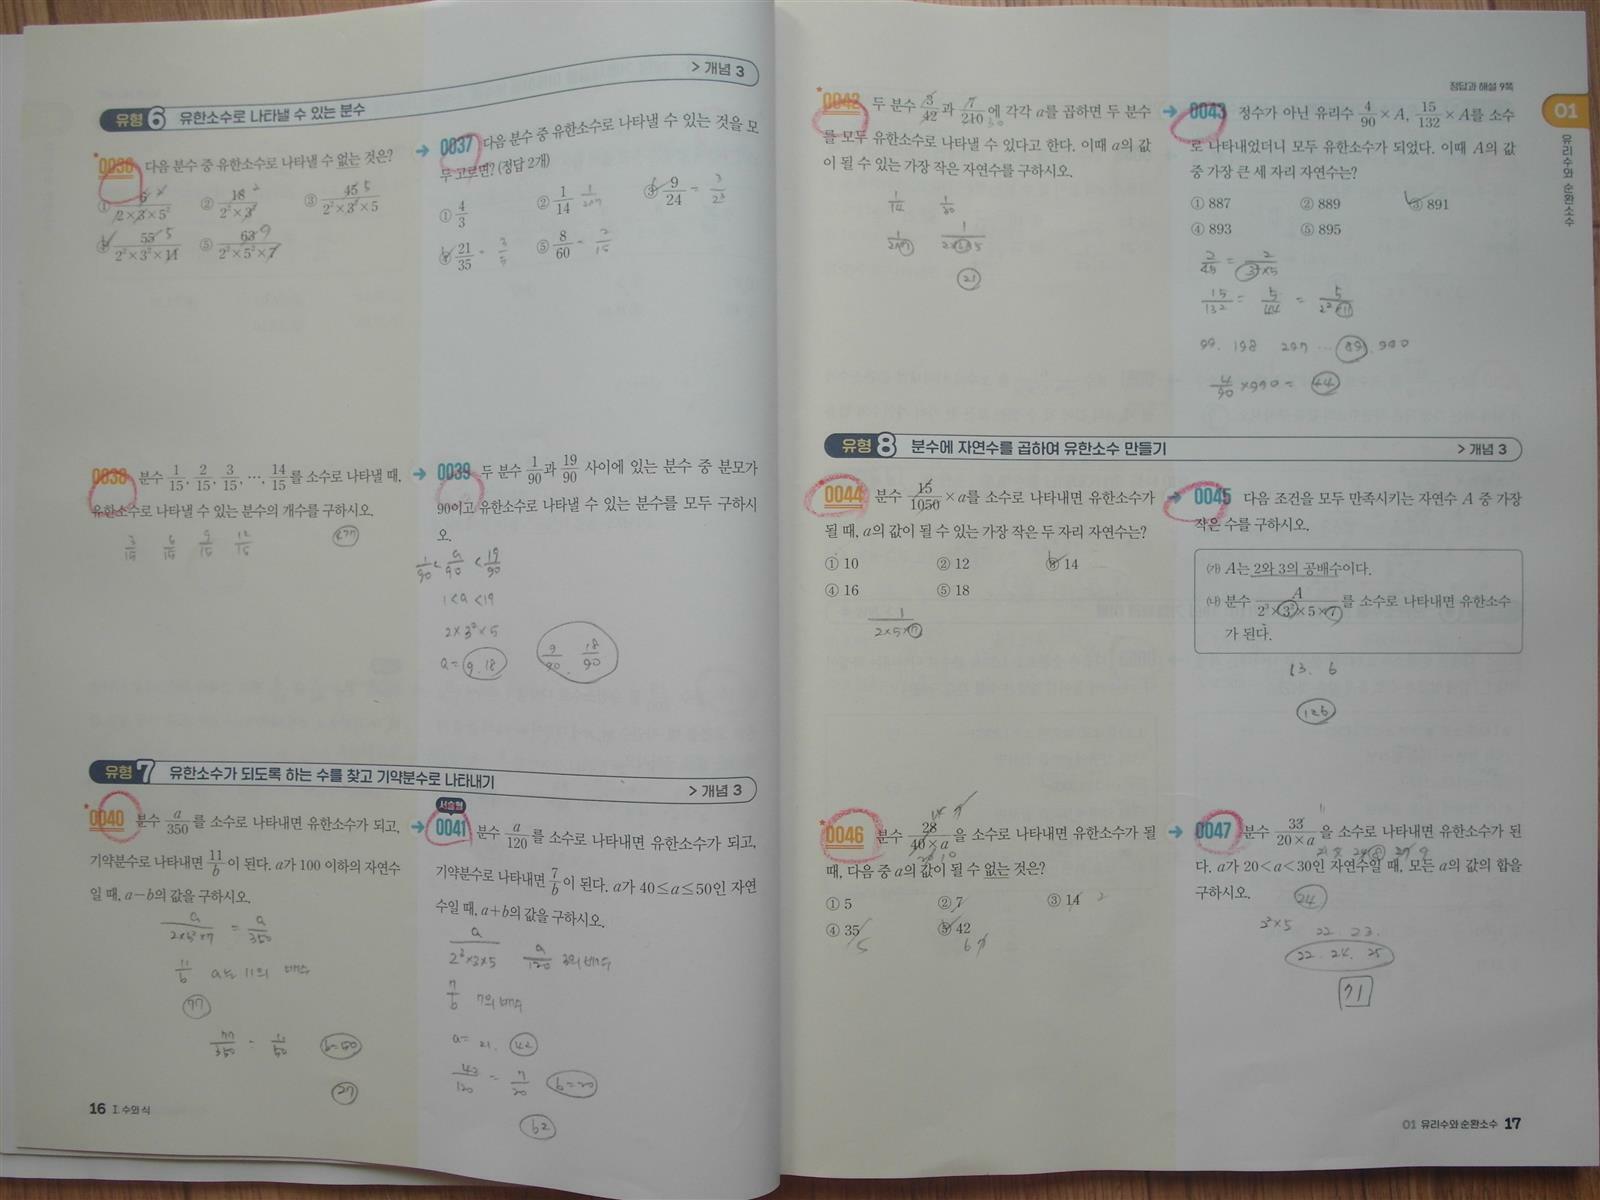 유형 6 유한소수로 나타낼 수 있는 분수
> 개념 3
0036 다음 분수 중 유한소수로 나타낼 수 없는 것은?
① 6/(2×3×5²) ② 18/(2²×3²) ③ 45/(2²×3²×5)
④ 55/(2²×3²×11) ⑤ 63/(2²×5²×7)
→ 0037 다음 분수 중 유한소수로 나타낼 수 있는 것을 모
두 고르면? (정답 2개)
① 4/3 ② 1/14 ③ 9/24 = 3/2³
④ 21/35 = 3/5 ⑤ 8/60 = 2/15
0038 분수 1/15, 2/15, 3/15, …, 14/15를 소수로 나타낼 때,
유한소수로 나타낼 수 있는 분수의 개수를 구하시오.
3/15 6/15 9/15 12/15
→ 0039 두 분수 1/90과 19/90 사이에 있는 분수 중 분모가
90이고 유한소수로 나타낼 수 있는 분수를 모두 구하시
오.
1/90 < a/90 < 19/90
1 < a < 19
2×3²×5
a = 9. 18
9/90 . 18/90
유형 7 유한소수가 되도록 하는 수를 찾고 기약분수로 나타내기
> 개념 3
0040 분수 a/350를 소수로 나타내면 유한소수가 되고,
기약분수로 나타내면 11/b이 된다. a가 100 이하의 자연수
일 때, a-b의 값을 구하시오.
a/(2×5²×7) = a/350
11/b a는 11의 배수
77
77/350 = 11/50 b=50
27
서술형
→ 0041 분수 a/120를 소수로 나타내면 유한소수가 되고,
기약분수로 나타내면 7/b이 된다. a가 40≤a≤50인 자연
수일 때, a+b의 값을 구하시오.
a/(2³×3×5) a/120 3의 배수
7/b 7의 배수
a= 21. 42
42/120 = 7/20 b=20
62
16 I. 수와 식
정답과 해설 9쪽
01
유리수와 순환소수
0042 두 분수 3/42과 7/210에 각각 a를 곱하면 두 분수
를 모두 유한소수로 나타낼 수 있다고 한다. 이때 a의 값
이 될 수 있는 가장 작은 자연수를 구하시오.
1/14 1/30
21
→ 0043 정수가 아닌 유리수 4/90×A, 15/132×A를 소수
로 나타내었더니 모두 유한소수가 되었다. 이때 A의 값
중 가장 큰 세 자리 자연수는?
① 887 ② 889 ③ 891
④ 893 ⑤ 895
2/45 = 2/(3²×5)
15/132 = 5/44 = 5/(2²×11)
99. 198 297 … 891. 990
4/90 ×990 = 44
유형 8 분수에 자연수를 곱하여 유한소수 만들기
> 개념 3
0044 분수 15/1050×a를 소수로 나타내면 유한소수가
될 때, a의 값이 될 수 있는 가장 작은 두 자리 자연수는?
① 10 ② 12 ③ 14
④ 16 ⑤ 18
1/(2×5×7)
→ 0045 다음 조건을 모두 만족시키는 자연수 A 중 가장
작은 수를 구하시오.
㈎ A는 2와 3의 공배수이다.
㈏ 분수 A/(2³×3²×5×7)를 소수로 나타내면 유한소수
가 된다.
63. 6
126
0046 분수 28/(40×a)을 소수로 나타내면 유한소수가 될
때, 다음 중 a의 값이 될 수 없는 것은?
① 5 ② 7 ③ 14
④ 35 ⑤ 42
→ 0047 분수 33/(20×a)을 소수로 나타내면 유한소수가 된
다. a가 20<a<30인 자연수일 때, 모든 a의 값의 합을
구하시오.
24
2²×5 22. 23.
22. 24. 25
71
01 유리수와 순환소수 17